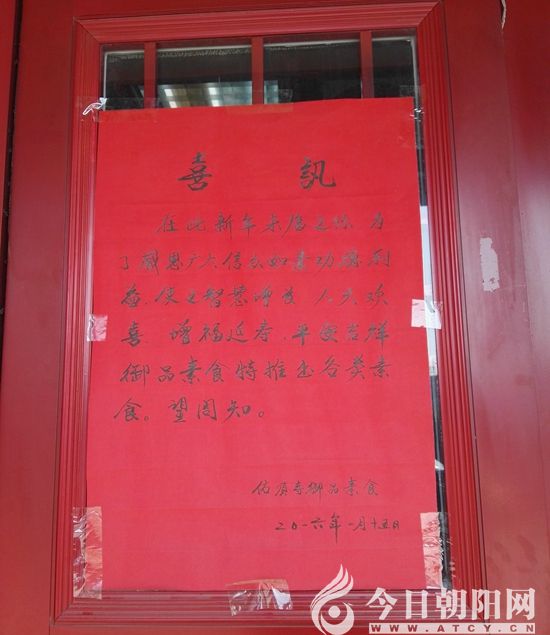 喜 訊
在此新年来临之际 为
了感恩广大信众如素功德利
益.使之智慧增长 人天欢
喜 增福延寿.平安吉祥
御品素食特推出各类素
食。望周知。
佑顺寺御品素食
二0一六年一月十五日
今日朝阳网
WWW.ATCY.CN